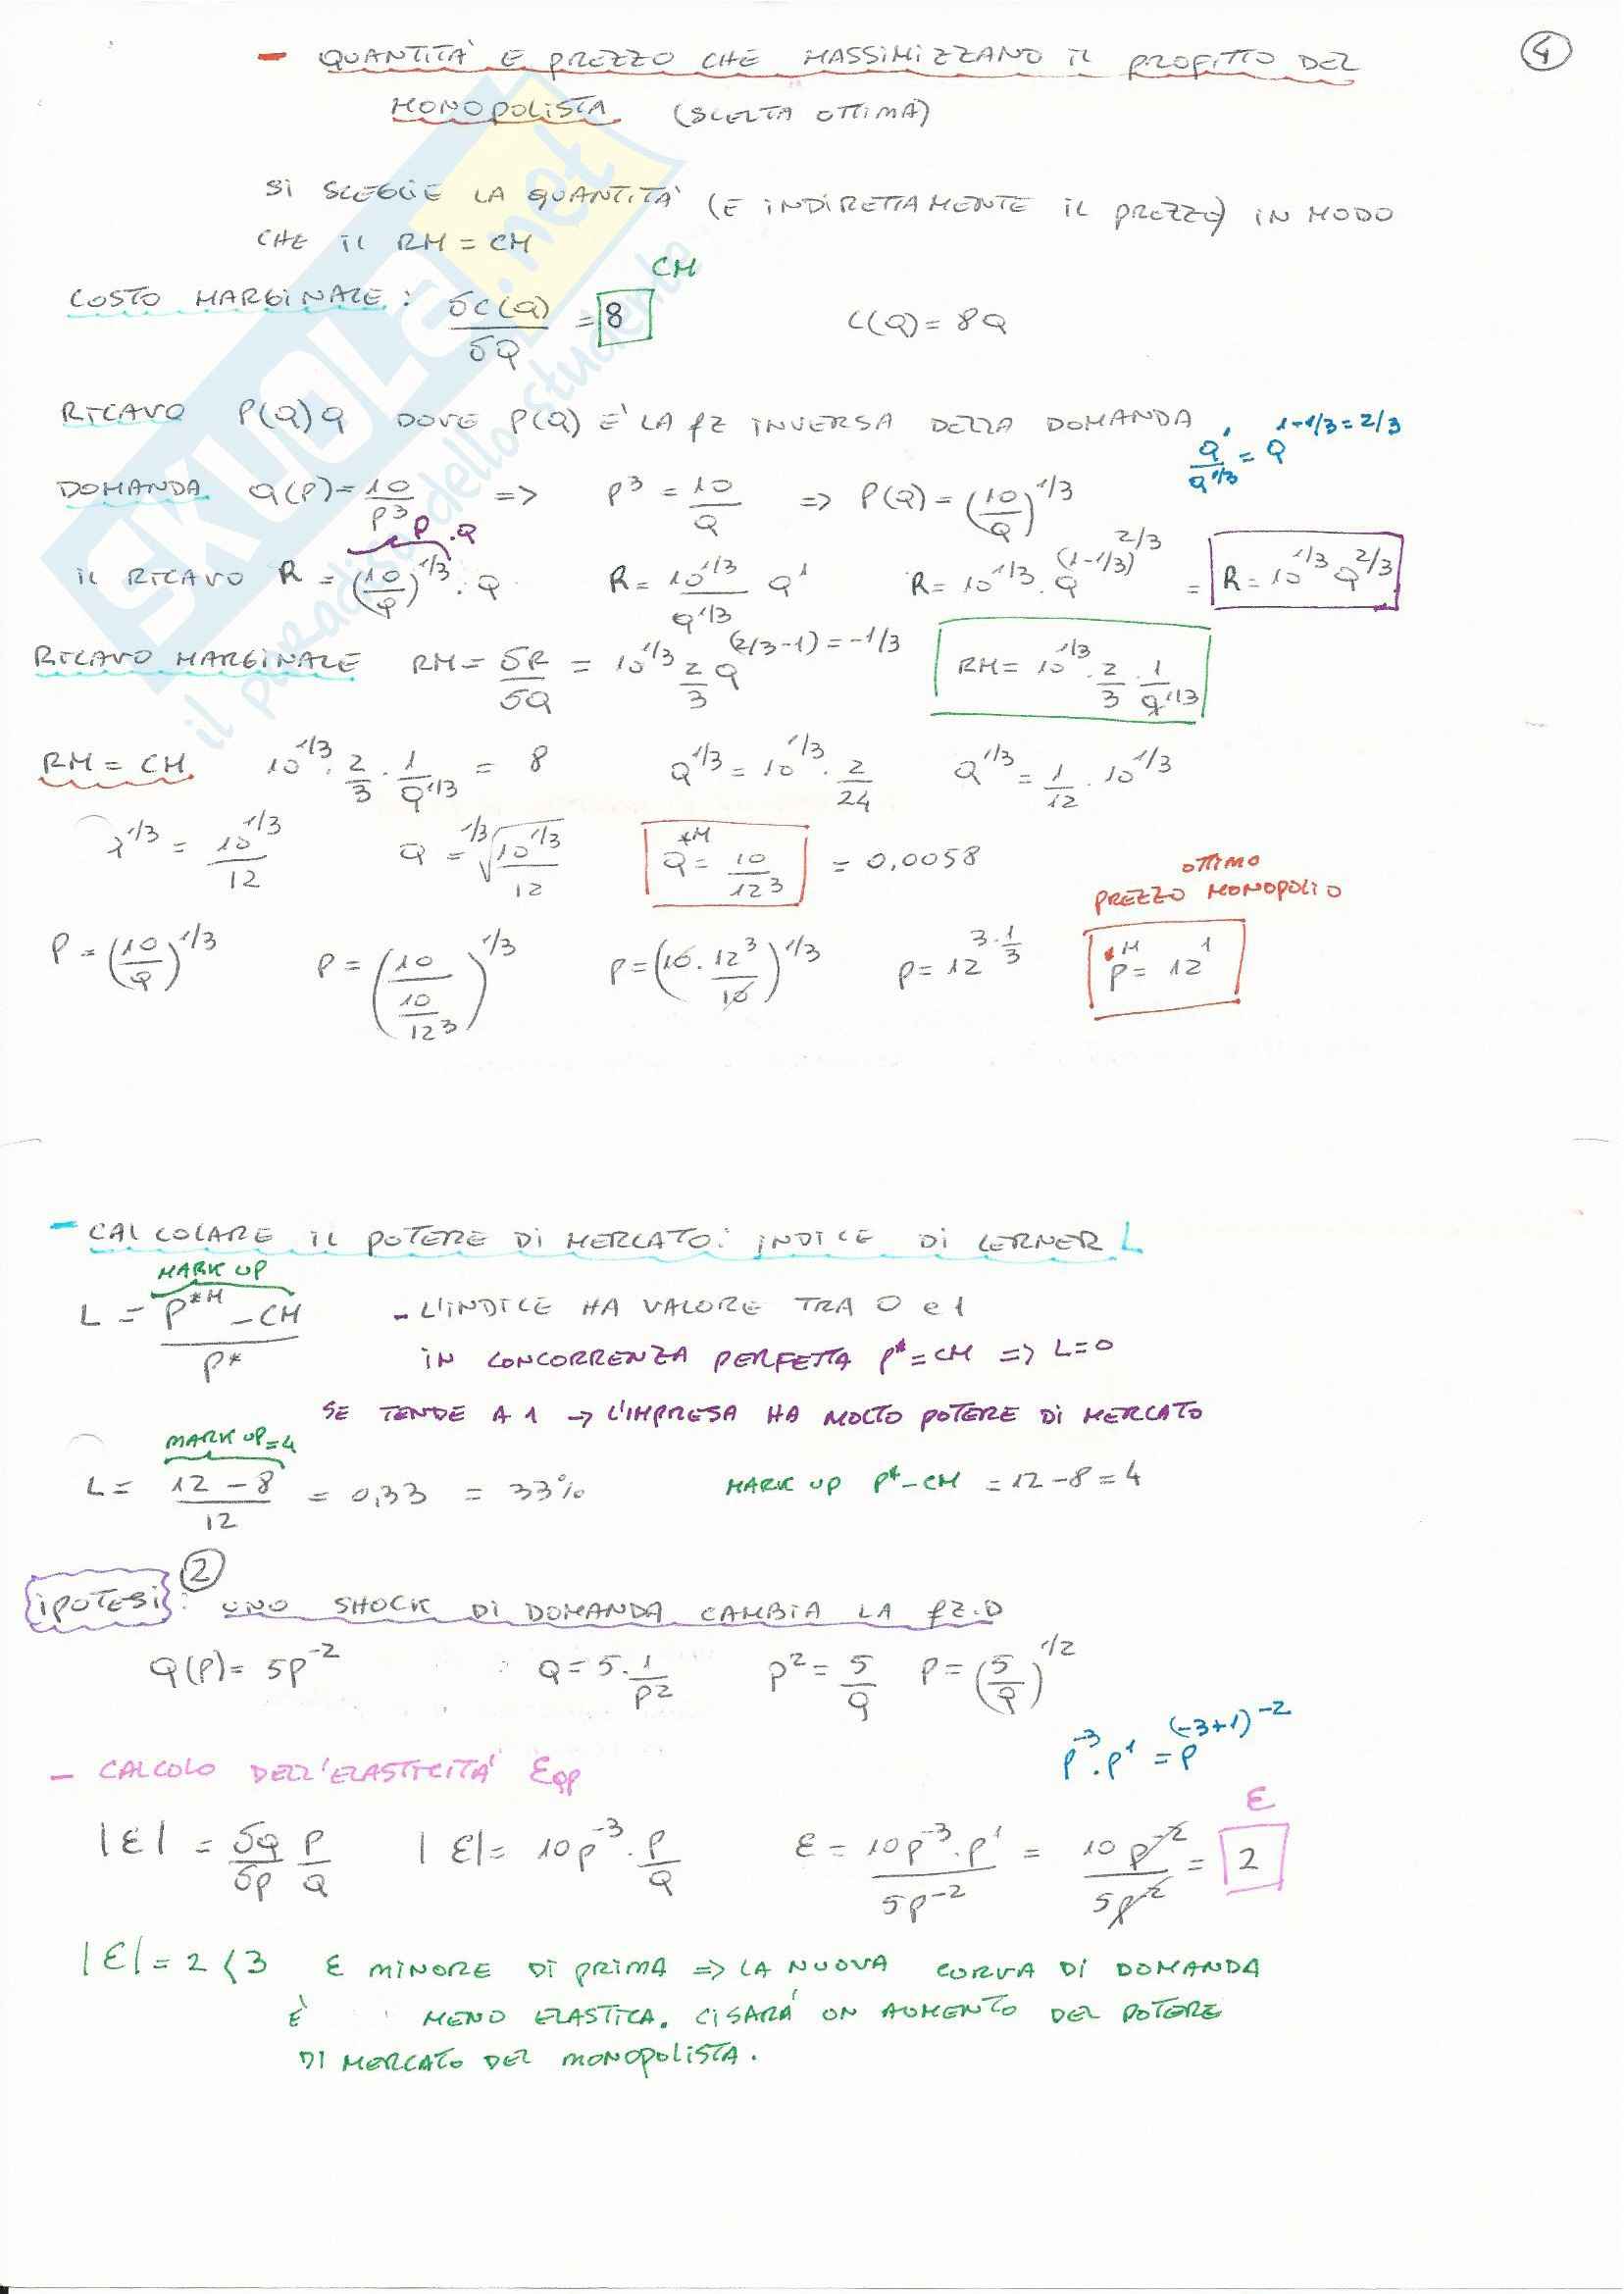 ④
- QUANTITA' E PREZZO CHE MASSIMIZZANO IL PROFITTO DEL
MONOPOLISTA (SCELTA OTTIMA)
SI SCEGLIE LA QUANTITA' (E INDIRETTAMENTE IL PREZZO) IN MODO
CHE IL RM = CM
CM
COSTO MARGINALE: δC(Q)/δQ = 8 C(Q) = 8Q
RICAVO P(Q)Q DOVE P(Q) E' LA fz INVERSA DELLA DOMANDA
Q¹/Q^1/3 = Q^1-1/3=2/3
DOMANDA Q(P) = 10/P³ => P³ = 10/Q => P(Q) = (10/Q)^1/3
P · Q
IL RICAVO R = (10/Q)^1/3 · Q R = 10^1/3/Q^1/3 Q¹ R = 10^1/3 · Q^(1-1/3) 2/3 = R = 10^1/3 Q^2/3
RICAVO MARGINALE RM = δR/δQ = 10^1/3 2/3 Q^(2/3-1) = -1/3 RM = 10^1/3 · 2/3 · 1/Q^1/3
RM = CM 10^1/3 · 2/3 · 1/Q^1/3 = 8 Q^1/3 = 10^1/3 · 2/24 Q^1/3 = 1/12 · 10^1/3
^1/3 = 10^1/3/12 Q = ^1/3√10^1/3/12 Q^*M = 10/12³ = 0,0058
OTTIMO
PREZZO MONOPOLIO
P = (10/Q)^1/3 P = (10/10/12³)^1/3 P = (10 · 12³/10)^1/3 P = 12^3·1/3 P^*M = 12¹
- CALCOLARE IL POTERE DI MERCATO: INDICE DI LERNER L
MARK UP
L = P^*M - CM/P* - L'INDICE HA VALORE TRA 0 e 1
IN CONCORRENZA PERFETTA P* = CM => L = 0
SE TENDE A 1 -> L'IMPRESA HA MOLTO POTERE DI MERCATO
MARK UP = 4
L = 12 - 8/12 = 0,33 = 33% MARK UP P* - CM = 12 - 8 = 4
②
IPOTESI: UNO SHOCK DI DOMANDA CAMBIA LA fz.D
Q(P) = 5P^-2 Q = 5 · 1/P² P² = 5/Q P = (5/Q)^1/2
P^-3 · P¹ = P^(-3+1) -2
- CALCOLO DELL'ELASTICITA' EQP
ε
|ε| = δQ/δP P/Q |ε| = 10P^-3 · P/Q ε = 10P^-3 · P¹/5P^-2 = 10P^-2/5P^-2 = 2
|ε| = 2 < 3 E MINORE DI PRIMA => LA NUOVA CURVA DI DOMANDA
È MENO ELASTICA. CI SARA' UN AUMENTO DEL POTERE
DI MERCATO DEL MONOPOLISTA.
SKUOLA.net
il paradiso dello studente